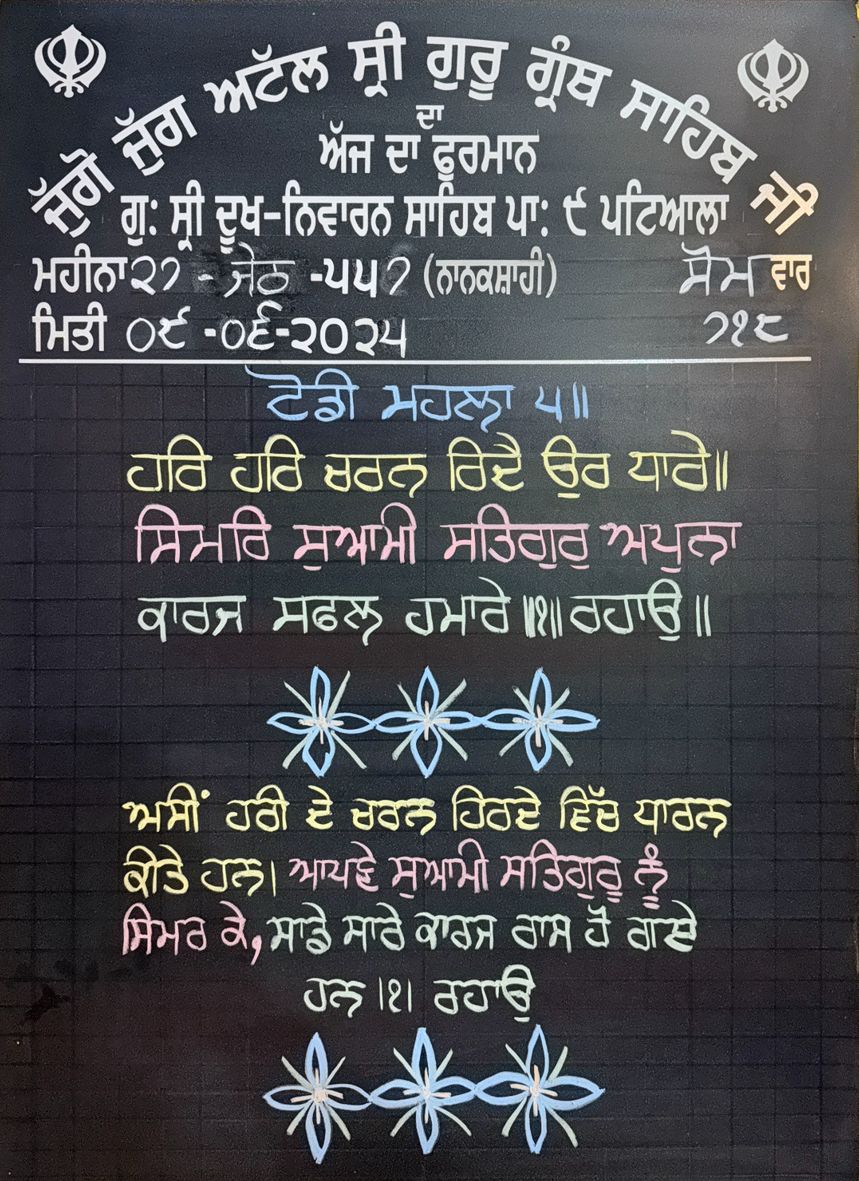 ਜੁੱਗੋ ਜੁੱਗ ਅਟੱਲ ਸ੍ਰੀ ਗੁਰੂ ਗ੍ਰੰਥ ਸਾਹਿਬ ਜੀ
ਦਾ
ਅੱਜ ਦਾ ਫੁਰਮਾਨ
ਗੁ: ਸ੍ਰੀ ਦੂਖ-ਨਿਵਾਰਨ ਸਾਹਿਬ ਪਾ: ੯ ਪਟਿਆਲਾ
ਮਹੀਨਾ ੨੭ - ਜੇਠ -੫੫੭ (ਨਾਨਕਸ਼ਾਹੀ) ਸੋਮ ਵਾਰ
ਮਿਤੀ ੦੯ -੦੬-੨੦੨੫ ੭੧੮
ਟੋਡੀ ਮਹਲਾ ੫॥
ਹਰਿ ਹਰਿ ਚਰਨ ਰਿਦੈ ਉਰ ਧਾਰੇ॥
ਸਿਮਰਿ ਸੁਆਮੀ ਸਤਿਗੁਰੁ ਅਪੁਨਾ
ਕਾਰਜ ਸਫਲ ਹਮਾਰੇ ॥੧॥ ਰਹਾਉ ॥
ਅਸੀਂ ਹਰੀ ਦੇ ਚਰਨ ਹਿਰਦੇ ਵਿੱਚ ਧਾਰਨ
ਕੀਤੇ ਹਨ। ਆਪਣੇ ਸੁਆਮੀ ਸਤਿਗੁਰੂ ਨੂੰ
ਸਿਮਰ ਕੇ, ਸਾਡੇ ਸਾਰੇ ਕਾਰਜ ਰਾਸ ਹੋ ਗਏ
ਹਨ ।੧। ਰਹਾਉ